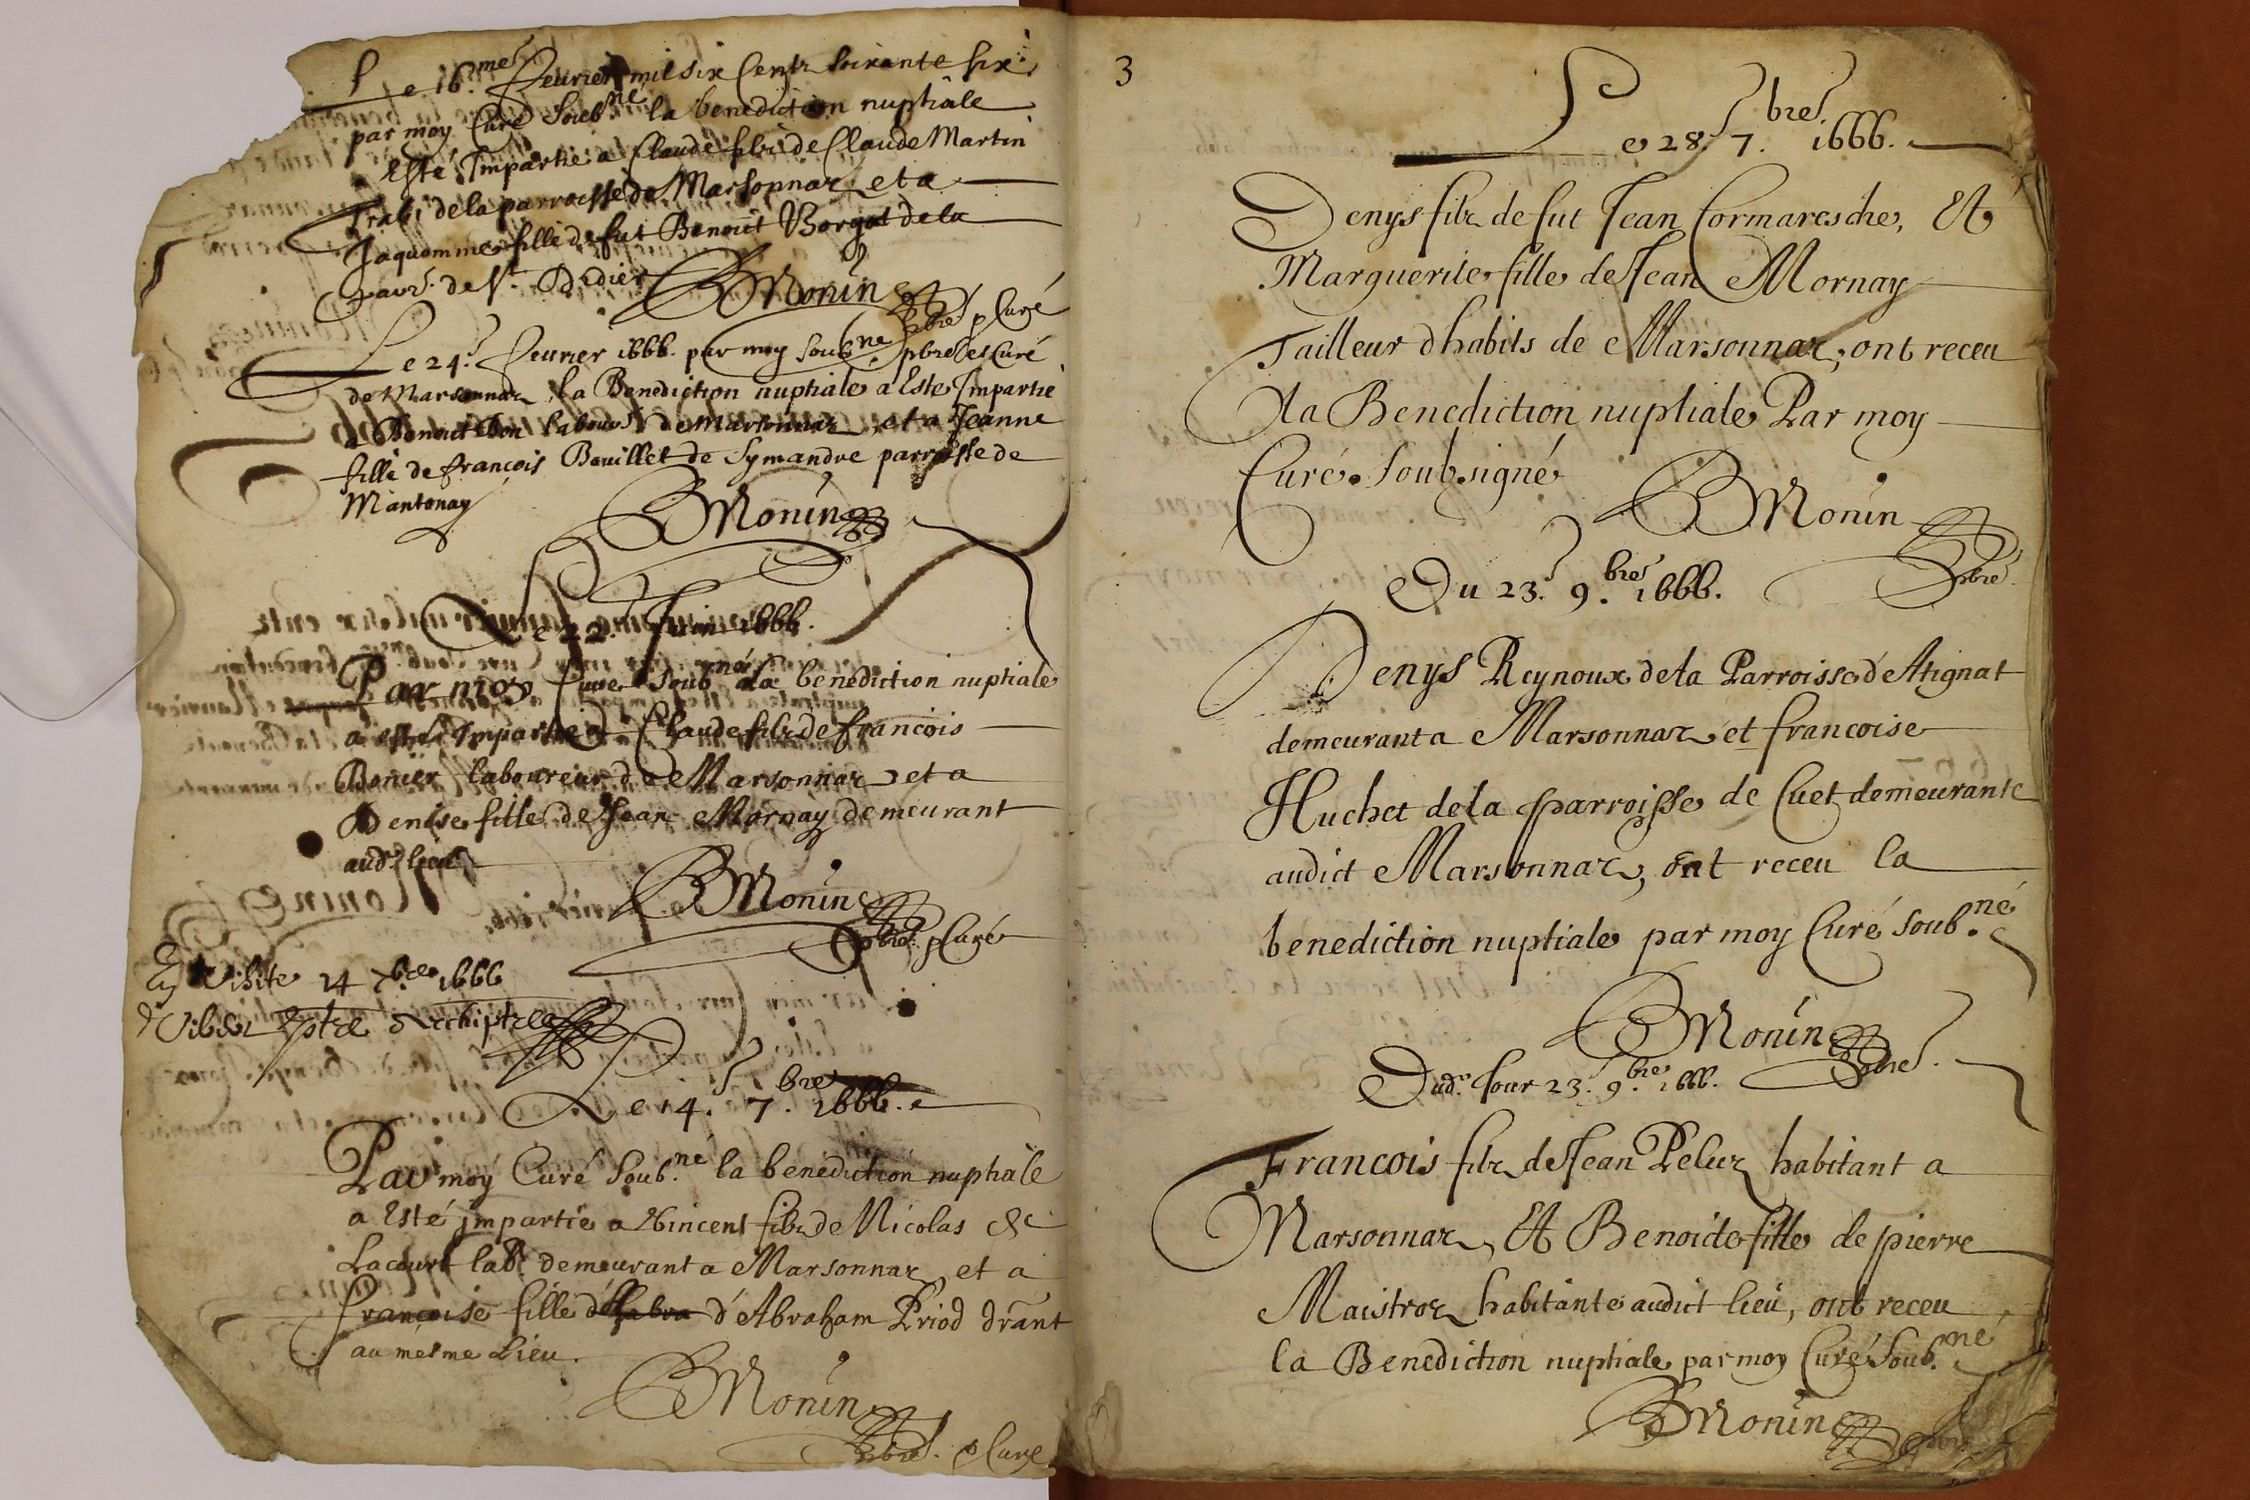 Le 16.mes feurier mil six Centz soixante six
par moy Curé Soub.né la benediction nuptiale
a Esté Impartie a Claude filz de Claude Martin
de la parroisse de Marsonnaz et a
Jaquomme fille de fut Benoict Borgat de la
parr. de St. Didier BMonin pbre p Curé
Le 24.s feurier 1666. par moy soub.ne pbre et Curé
de Marsonnaz la Benediction nuptiale a Este Impartie
a Benoict Bon labour de Marsonnaz et a Jeanne
fille de francois Bouillet de Symandre parroisse de
Mantenay
BMonin
Le 22. Juin 1666.
Par moy Curé Soub.né la benediction nuptiale
a esté Impartie a Claude filz de francois
Bonier laboureur de Marsonnaz et a
Denise fille de Jean Mornay demeurant
aud. lieu
BMonin
pbre. p Curé
En Visite 14 7.bre 1666
Archiptre
Le 14.s 7.bre 1666.
Par moy Curé Soub.né la benediction nuptiale
a Esté jmpartie a Vincent filz de Nicolas de
Lacourt lab.r demeurant a Marsonnaz et a
francoise fille d'Abraham Priod drant
au mesme Lieu.
BMonin
pbre. p Curé
3
Le 28.s 7.bres 1666.
Denys filz de fut Jean Cormaresche, Et
Marguerite fille de Jean Mornay
Tailleur dhabits de Marsonnaz, ont receu
la Benediction nuptiale Par moy
Curé Soubsigné
BMonin
pbre.
Du 23.s 9.bres 1666.
Denys Reynoux de la Parroisse d'Atignat
demeurant a Marsonnaz et francoise
Huchet de la parroisse de Cuet demeurante
audict Marsonnaz, ont receu la
benediction nuptiale par moy Curé soub.né
BMonin
pbre.
Dud. Jour 23.s 9.bres 1666.
Francois filz de Jean Peluz habitant a
Marsonnaz, Et Benoiste fille de pierre
Maistroz habitante audict lieu, ont receu
la Benediction nuptiale par moy Curé Soub.né
BMonin
pbre